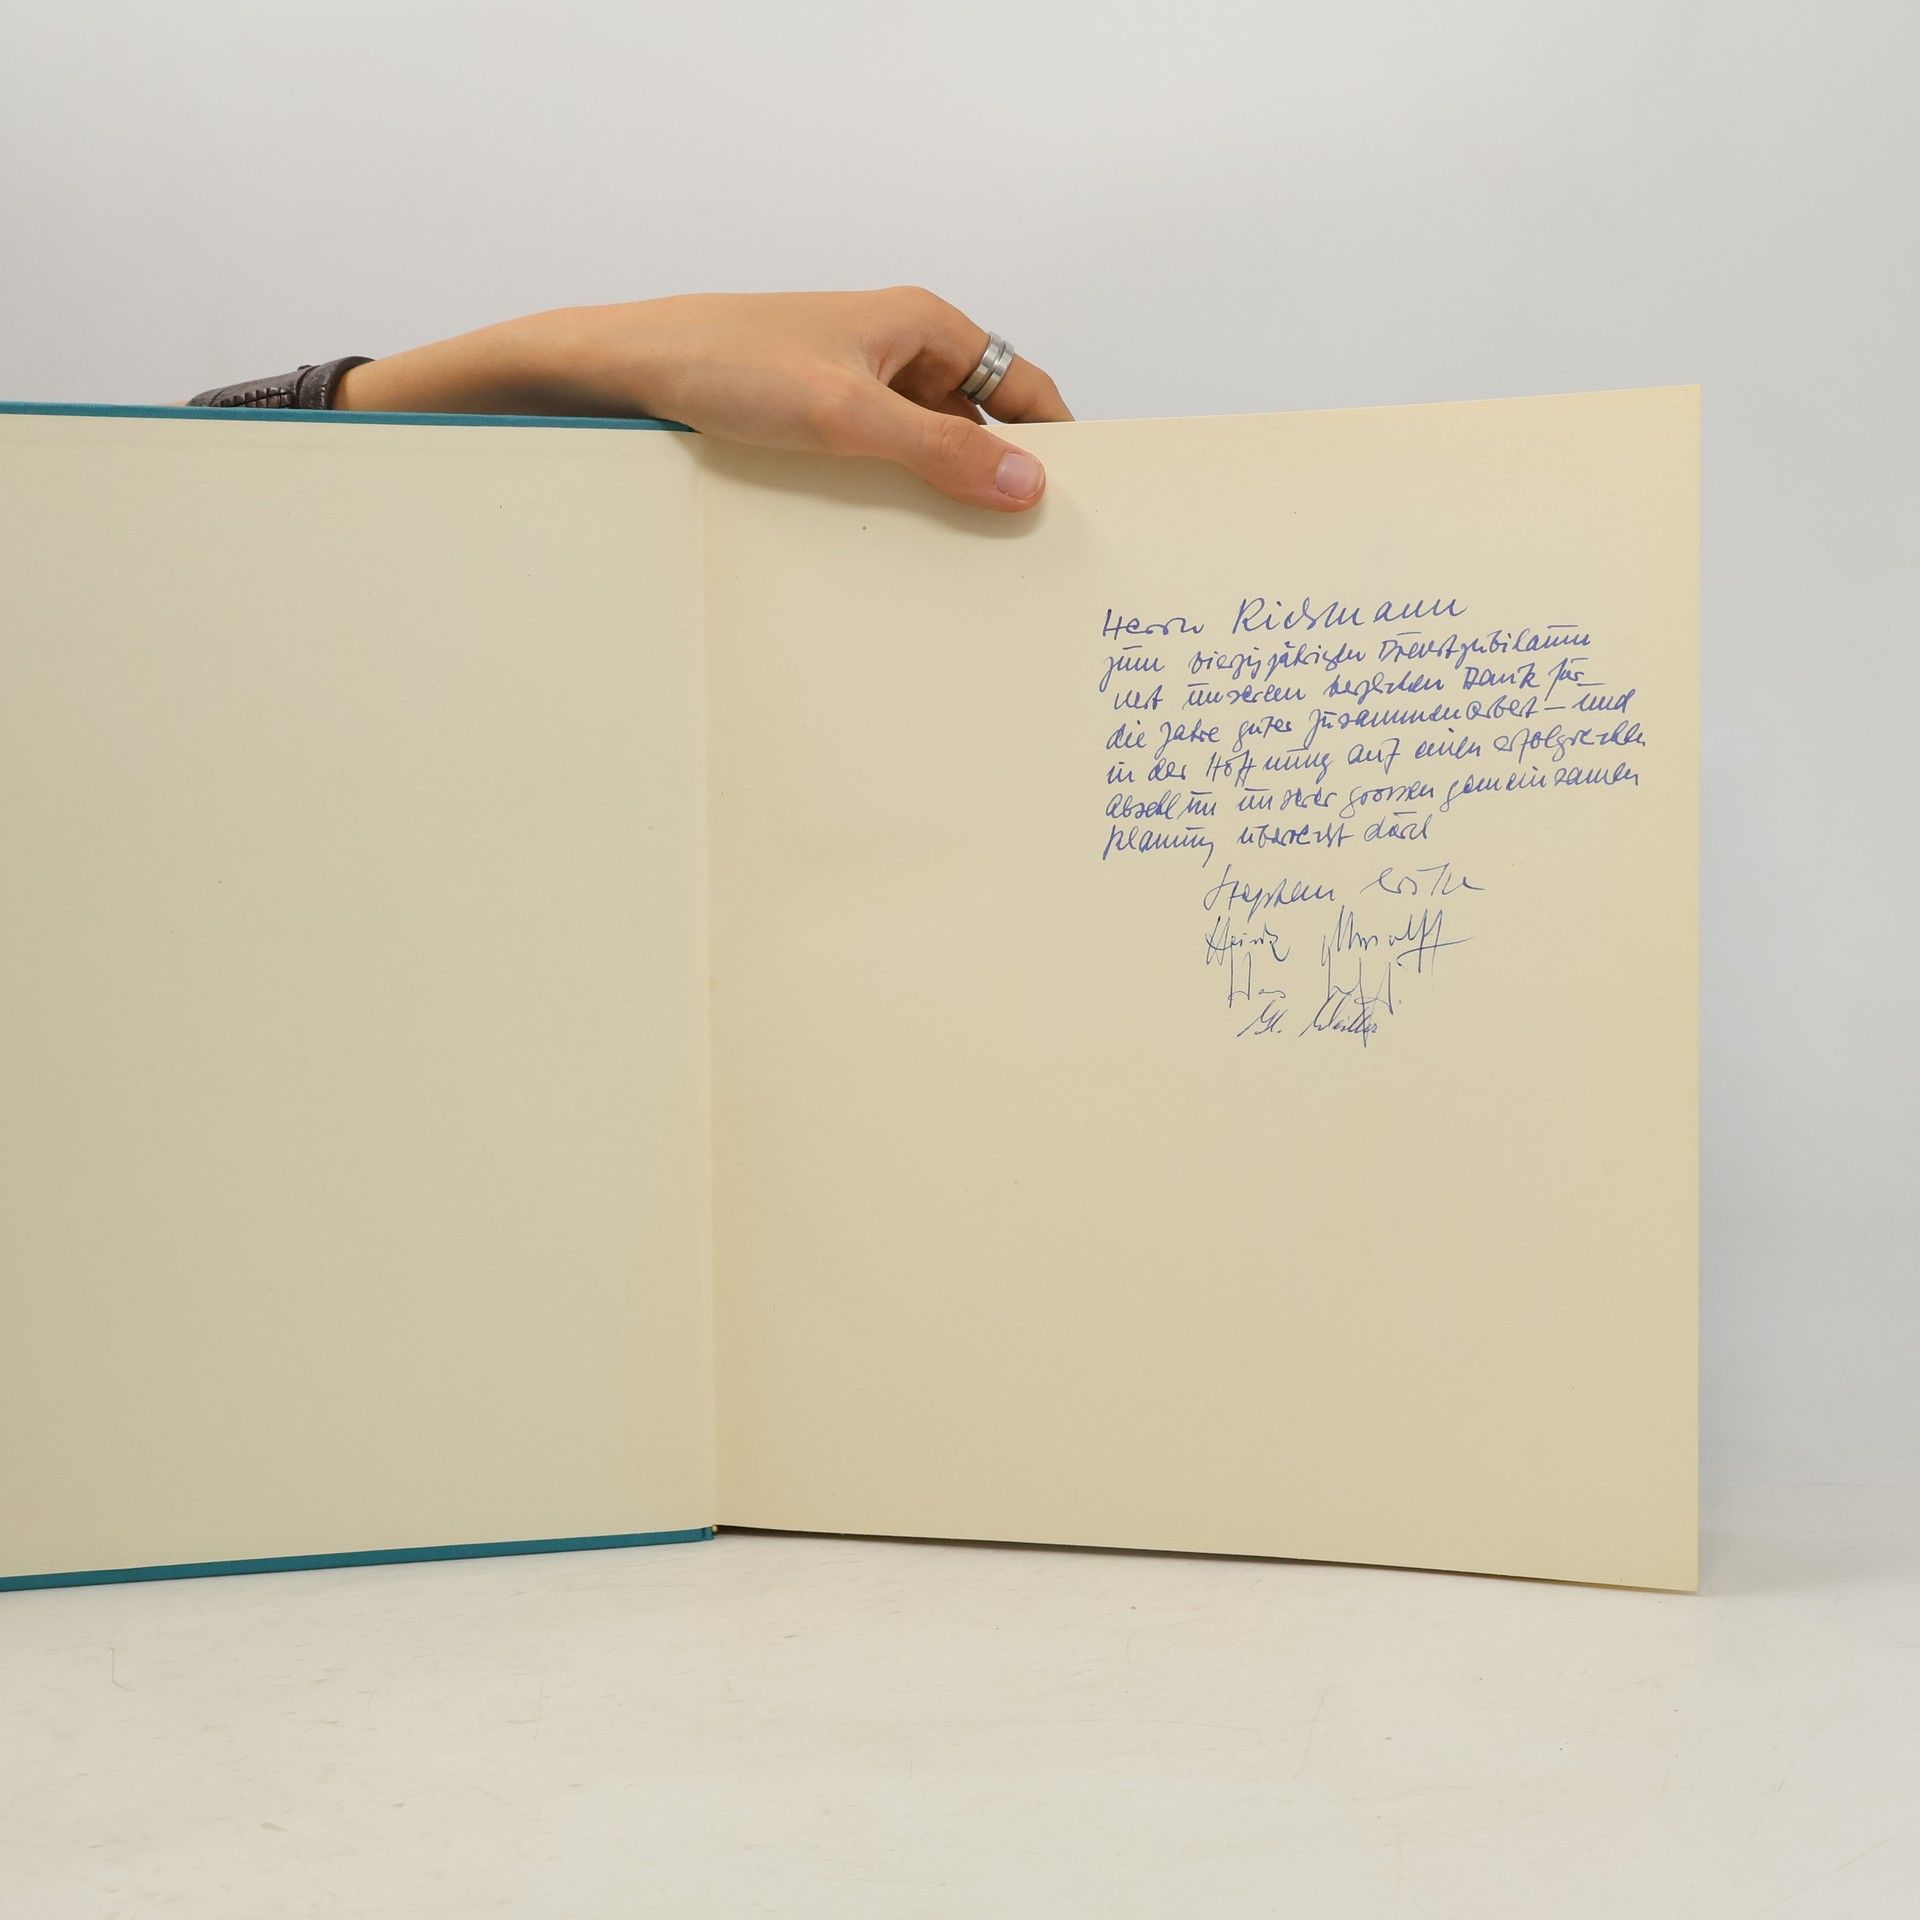 Herrn Richmann
zum vierzigjährigen Dienstjubiläum
mit unserem herzlichen Dank für
die Jahre guter Zusammenarbeit – und
in der Hoffnung auf einen erfolgreichen
Abschluss unserer grossen gemeinsamen
Planung überreicht durch
Stephan
Heinz